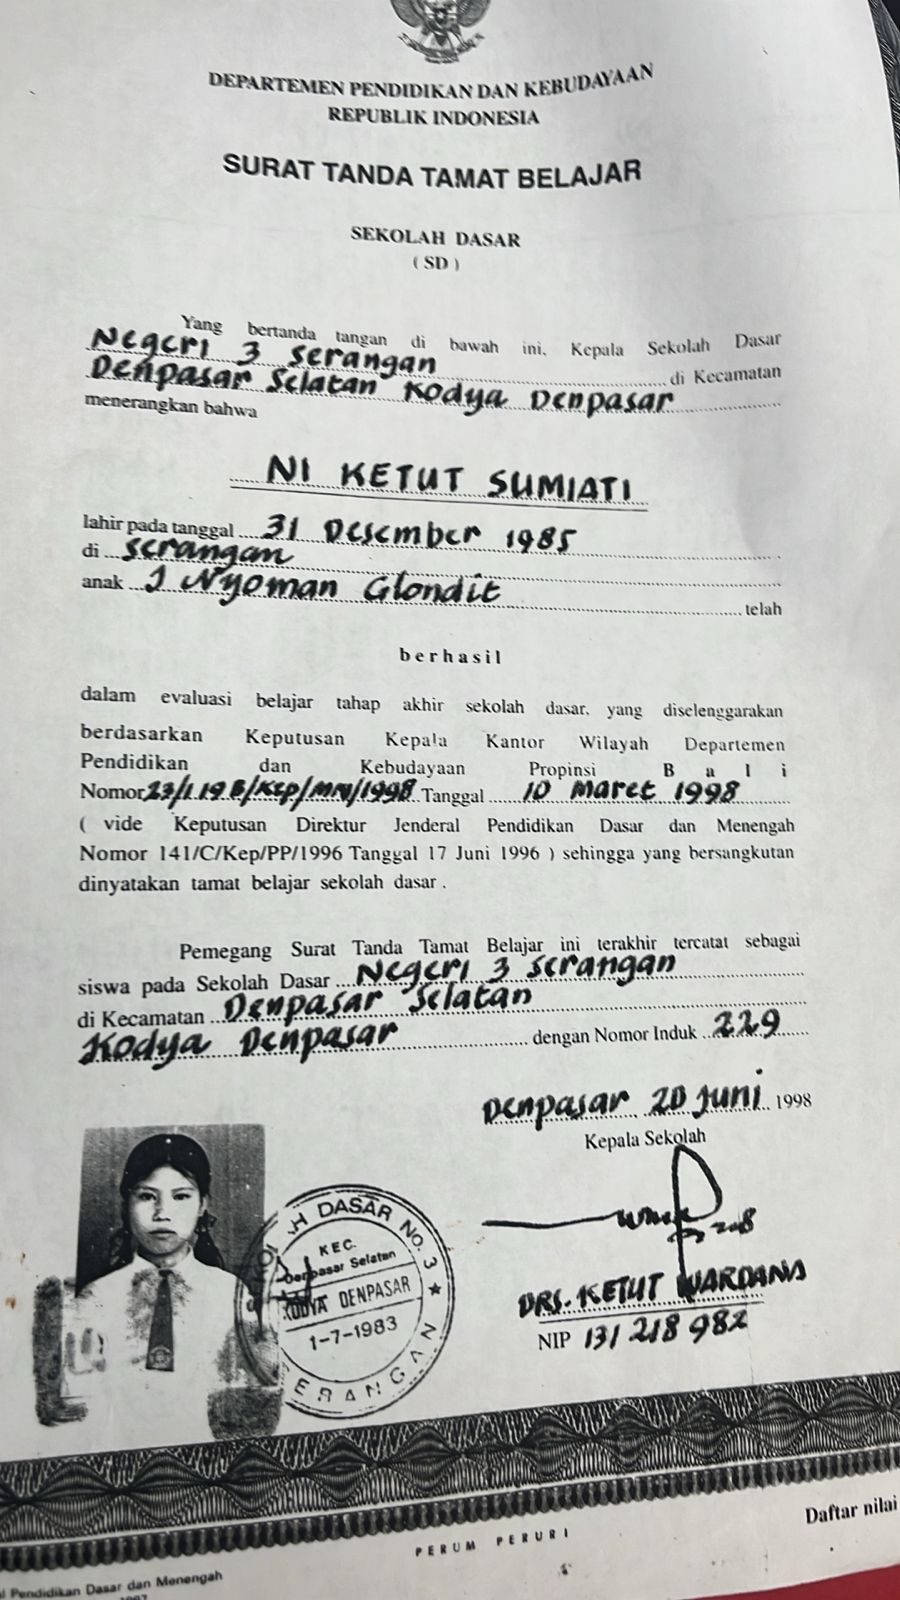 DEPARTEMEN PENDIDIKAN DAN KEBUDAYAAN
REPUBLIK INDONESIA
SURAT TANDA TAMAT BELAJAR
SEKOLAH DASAR
( SD )
Yang bertanda tangan di bawah ini, Kepala Sekolah Dasar
Negeri 3 Serangan di Kecamatan
Denpasar Selatan Kodya Denpasar
menerangkan bahwa
NI KETUT SUMIATI
lahir pada tanggal 31 Desember 1985
di Serangan
anak I Nyoman Glondit telah
berhasil
dalam evaluasi belajar tahap akhir sekolah dasar, yang diselenggarakan
berdasarkan Keputusan Kepala Kantor Wilayah Departemen
Pendidikan dan Kebudayaan Propinsi B a l i
Nomor Tanggal 10 Maret 1998
( vide Keputusan Direktur Jenderal Pendidikan Dasar dan Menengah
Nomor 141/C/Kep/PP/1996 Tanggal 17 Juni 1996 ) sehingga yang bersangkutan
dinyatakan tamat belajar sekolah dasar .
Pemegang Surat Tanda Tamat Belajar ini terakhir tercatat sebagai
siswa pada Sekolah Dasar Negeri 3 Serangan
di Kecamatan Denpasar Selatan
Kodya Denpasar dengan Nomor Induk 229
Denpasar 20 Juni 1998
Kepala Sekolah
DRS. KETUT WARDANA
NIP 131 218 982
H DASAR NO. 3
KEC.
Denpasar Selatan
KODYA DENPASAR
1-7-1983
ERANGAN
Daftar nilai
PERUM PERURI
Pendidikan Dasar dan Menengah